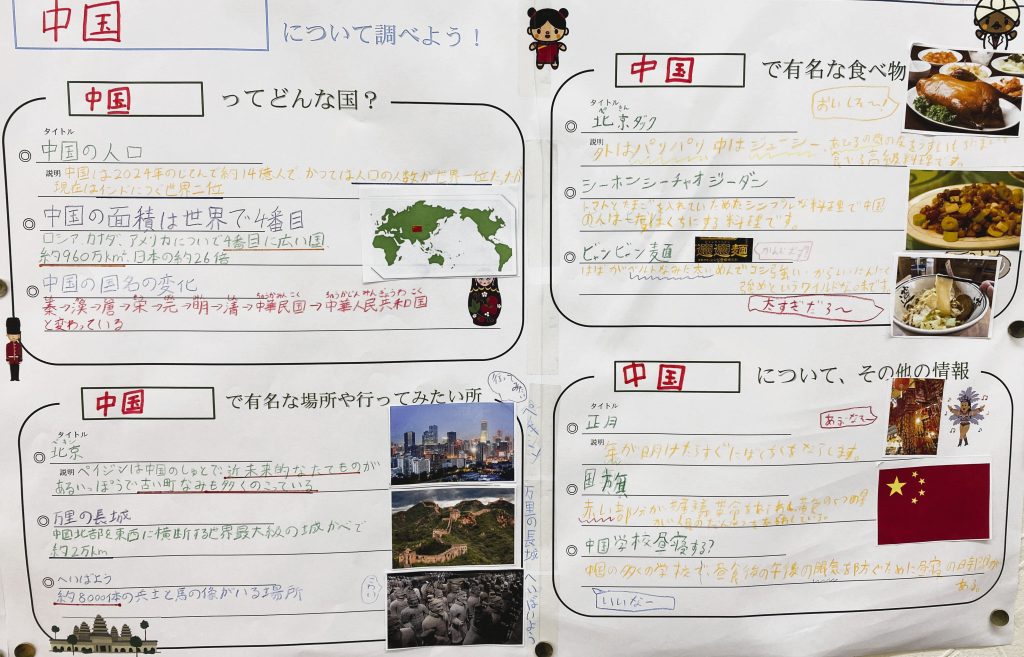 中国 について調べよう！
中国 ってどんな国？
タイトル
中国の人口
説明 中国は2024年のじてんで約14億人で、かつては人口の人数が世界一位だったが
現在はインドにつぐ世界二位
中国の面積は世界で4番目
ロシア、カナダ、アメリカについで4番目に広い国
約960万km²、日本の約26倍
中国の国名の変化
秦→漢→唐→宋→元→明→清→中華民国→中華人民共和国
ちゅうかみんこく ちゅうかじんみんきょうわこく
と変わっている
中国 で有名な場所や行ってみたい所
行ってみたい
タイトル
北京
説明 ペイジンは中国のしゅとで、近未来的なたてものが
あるいっぽうで古い町なみも多くのこっている
万里の長城
中国北部を東西に横断する世界最大級の城かべで
約2万km
へいばよう
約8000体の兵士と馬の像がいる場所
こわい
万里の長城
へいばよう
中国 で有名な食べ物
タイトル
ぺきん
北京ダック
おいしそ〜！
説明 外はパリパリ 中はジューシー
食べる高級料理です。
シーホンシーチャオジーダン
トマトとたまごを入れていためたシンプルな料理で中国
の人は
料理です。
ビャンビャン麺
はばが ベルトなみた太いめんでコシも強い からしいにんにく
強めというワイルドな味です。
太すぎだろ〜
中国 について、その他の情報
タイトル
正月
あぶなそ〜
説明 年が明けたらすぐにばくちくをならします。
国旗
赤い部分が
革命をあらわし黄色の5つの星
中国学校昼寝する？
中国の多くの学校で、昼食後の午後の眠気を防ぐために昼寝の時間が
ある。
いいなー